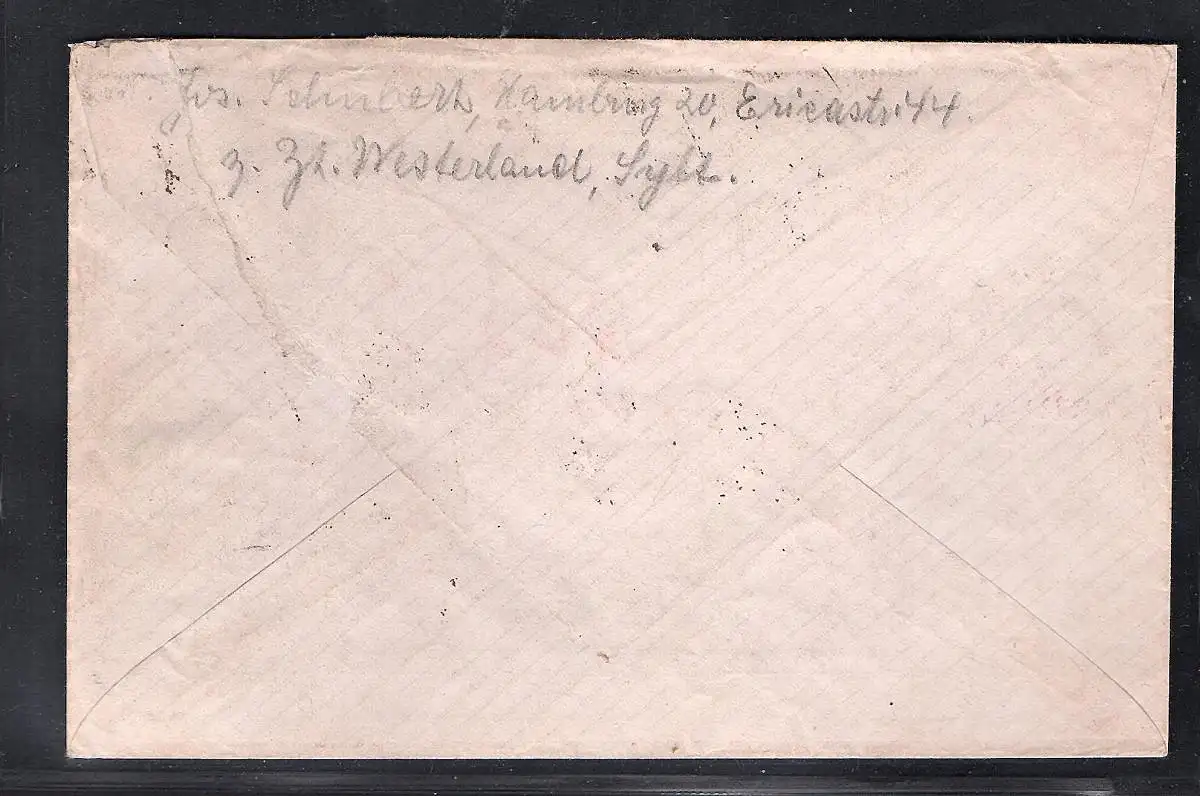 Jos. Schubert, Hamburg 20, Ericastr. 44.
z. Zt. Westerland, Sylt.